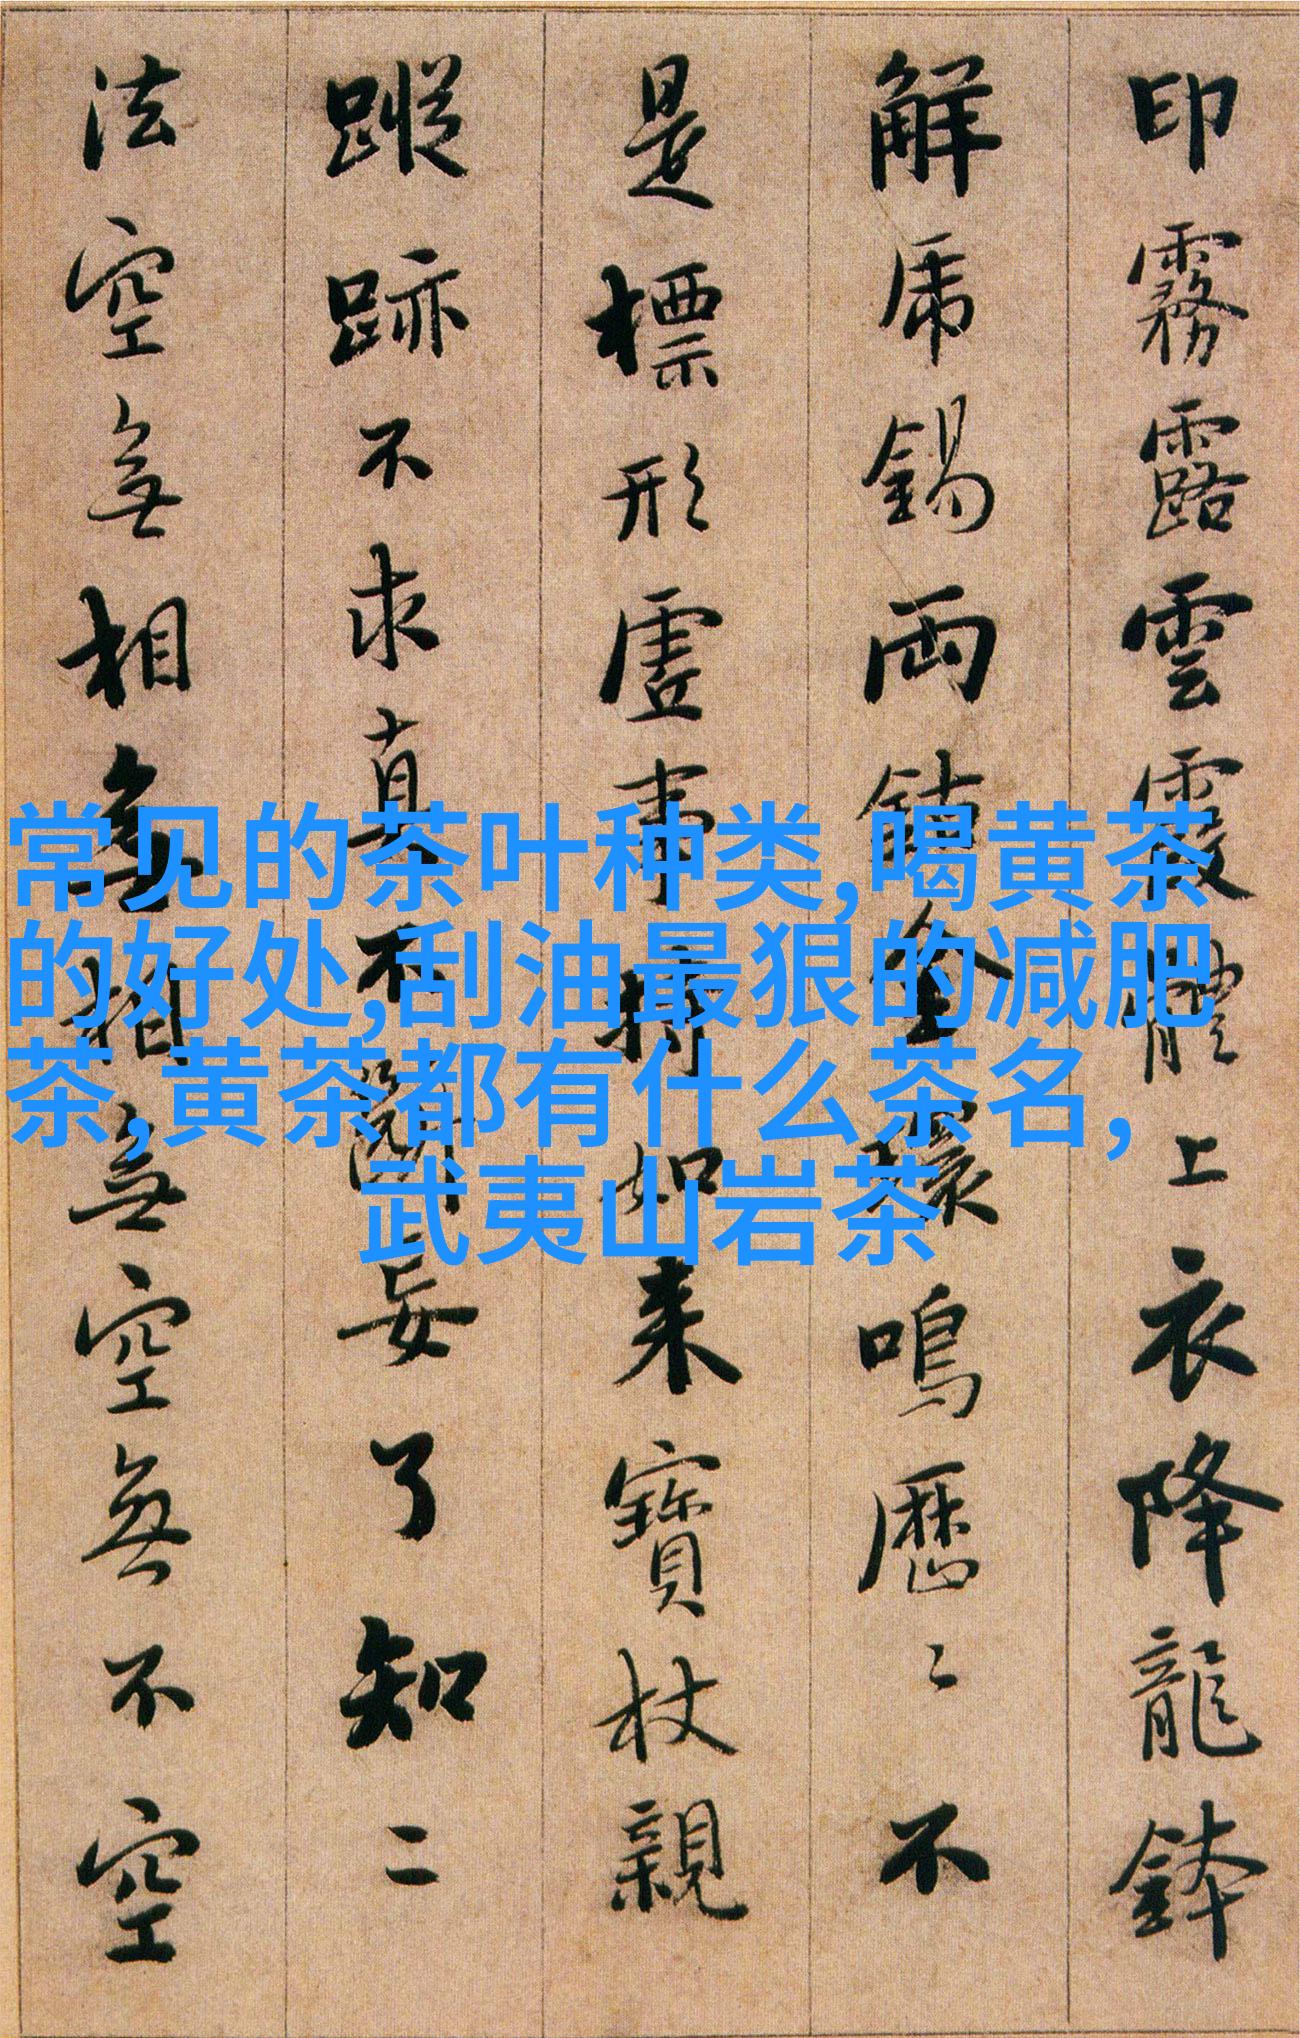 印霧露雲霞體上衣降龍鉢
解虎錫兩鈷金環鳴歷〻不
是標形虛事持如来寶杖親
蹤跡不求真不斷妄了知二
法空無相無相無空無不空
常见的茶叶种类,喝黄茶
的好处,刮油最狠的减肥
茶,黄茶都有什么茶名,
武夷山岩茶